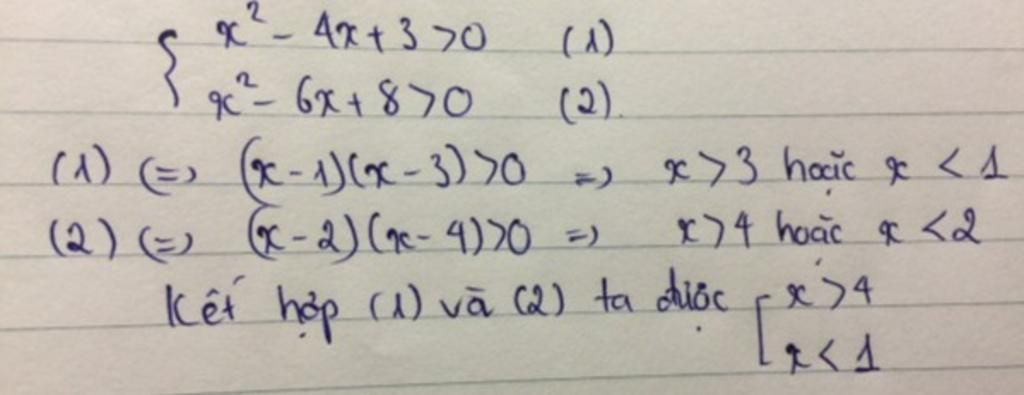 { x² - 4x + 3 > 0 (1)
x² - 6x + 8 > 0 (2).
(1) (=) (x - 1)(x - 3) > 0 => x > 3 hoặc x < 1
(2) (=) (x - 2)(x - 4) > 0 => x > 4 hoặc x < 2
Kết hợp (1) và (2) ta được [ x > 4
x < 1